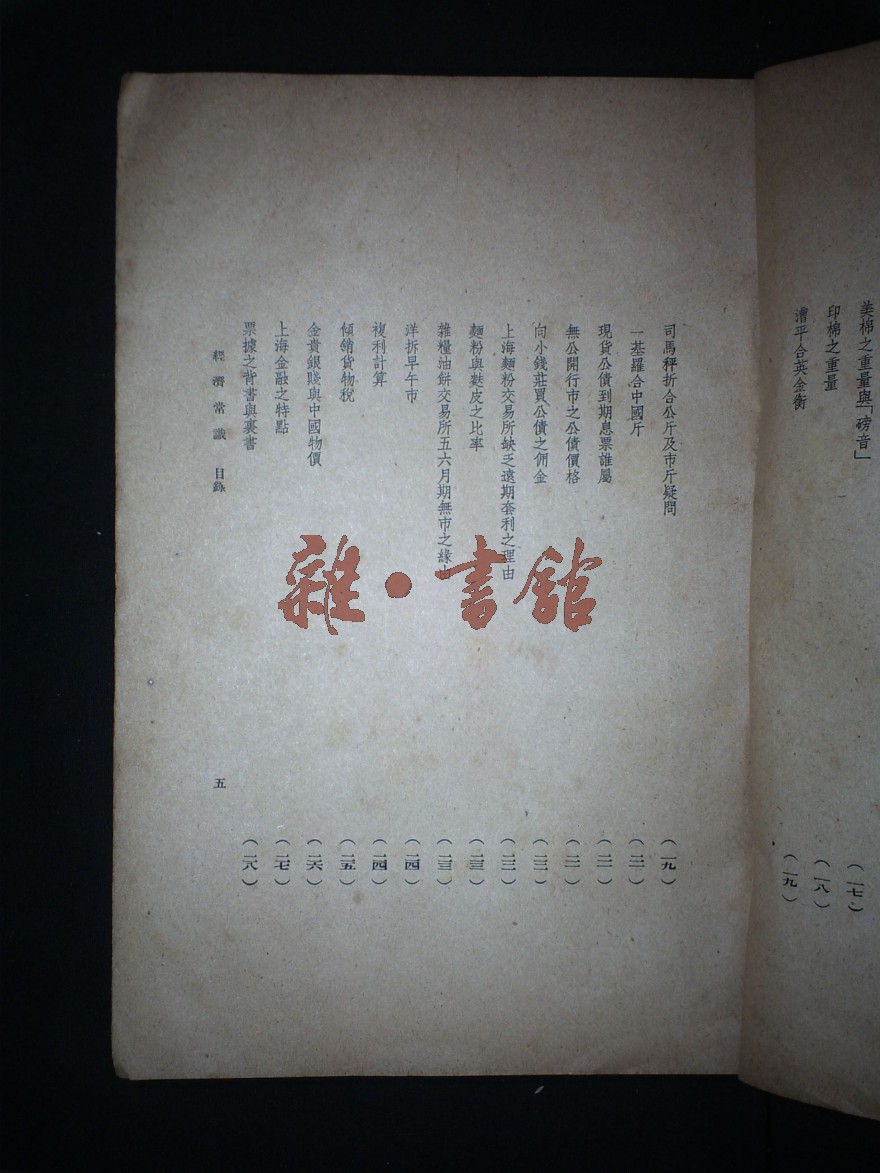 美棉之重量與「磅音」 (一七)
印棉之重量 (一八)
漕平合英金衡 (一九)
司馬秤折合公斤及市斤疑問 (一九)
一基羅合中國斤 (二一)
現貨公債到期息票誰屬 (二一)
無公開行市之公債價格 (二一)
向小錢莊買公債之佣金 (二二)
上海麵粉交易所缺乏遠期套利之理由 (二二)
麵粉與麩皮之比率 (二三)
雜糧油餅交易所五六月期無市之緣由 (二三)
洋拆早午市 (二四)
複利計算 (二四)
傾銷貨物稅 (二五)
金貴銀賤與中國物價 (二六)
上海金融之特點 (二七)
票據之背書與裏書 (二八)
經濟常識 目錄 五
雜·書館